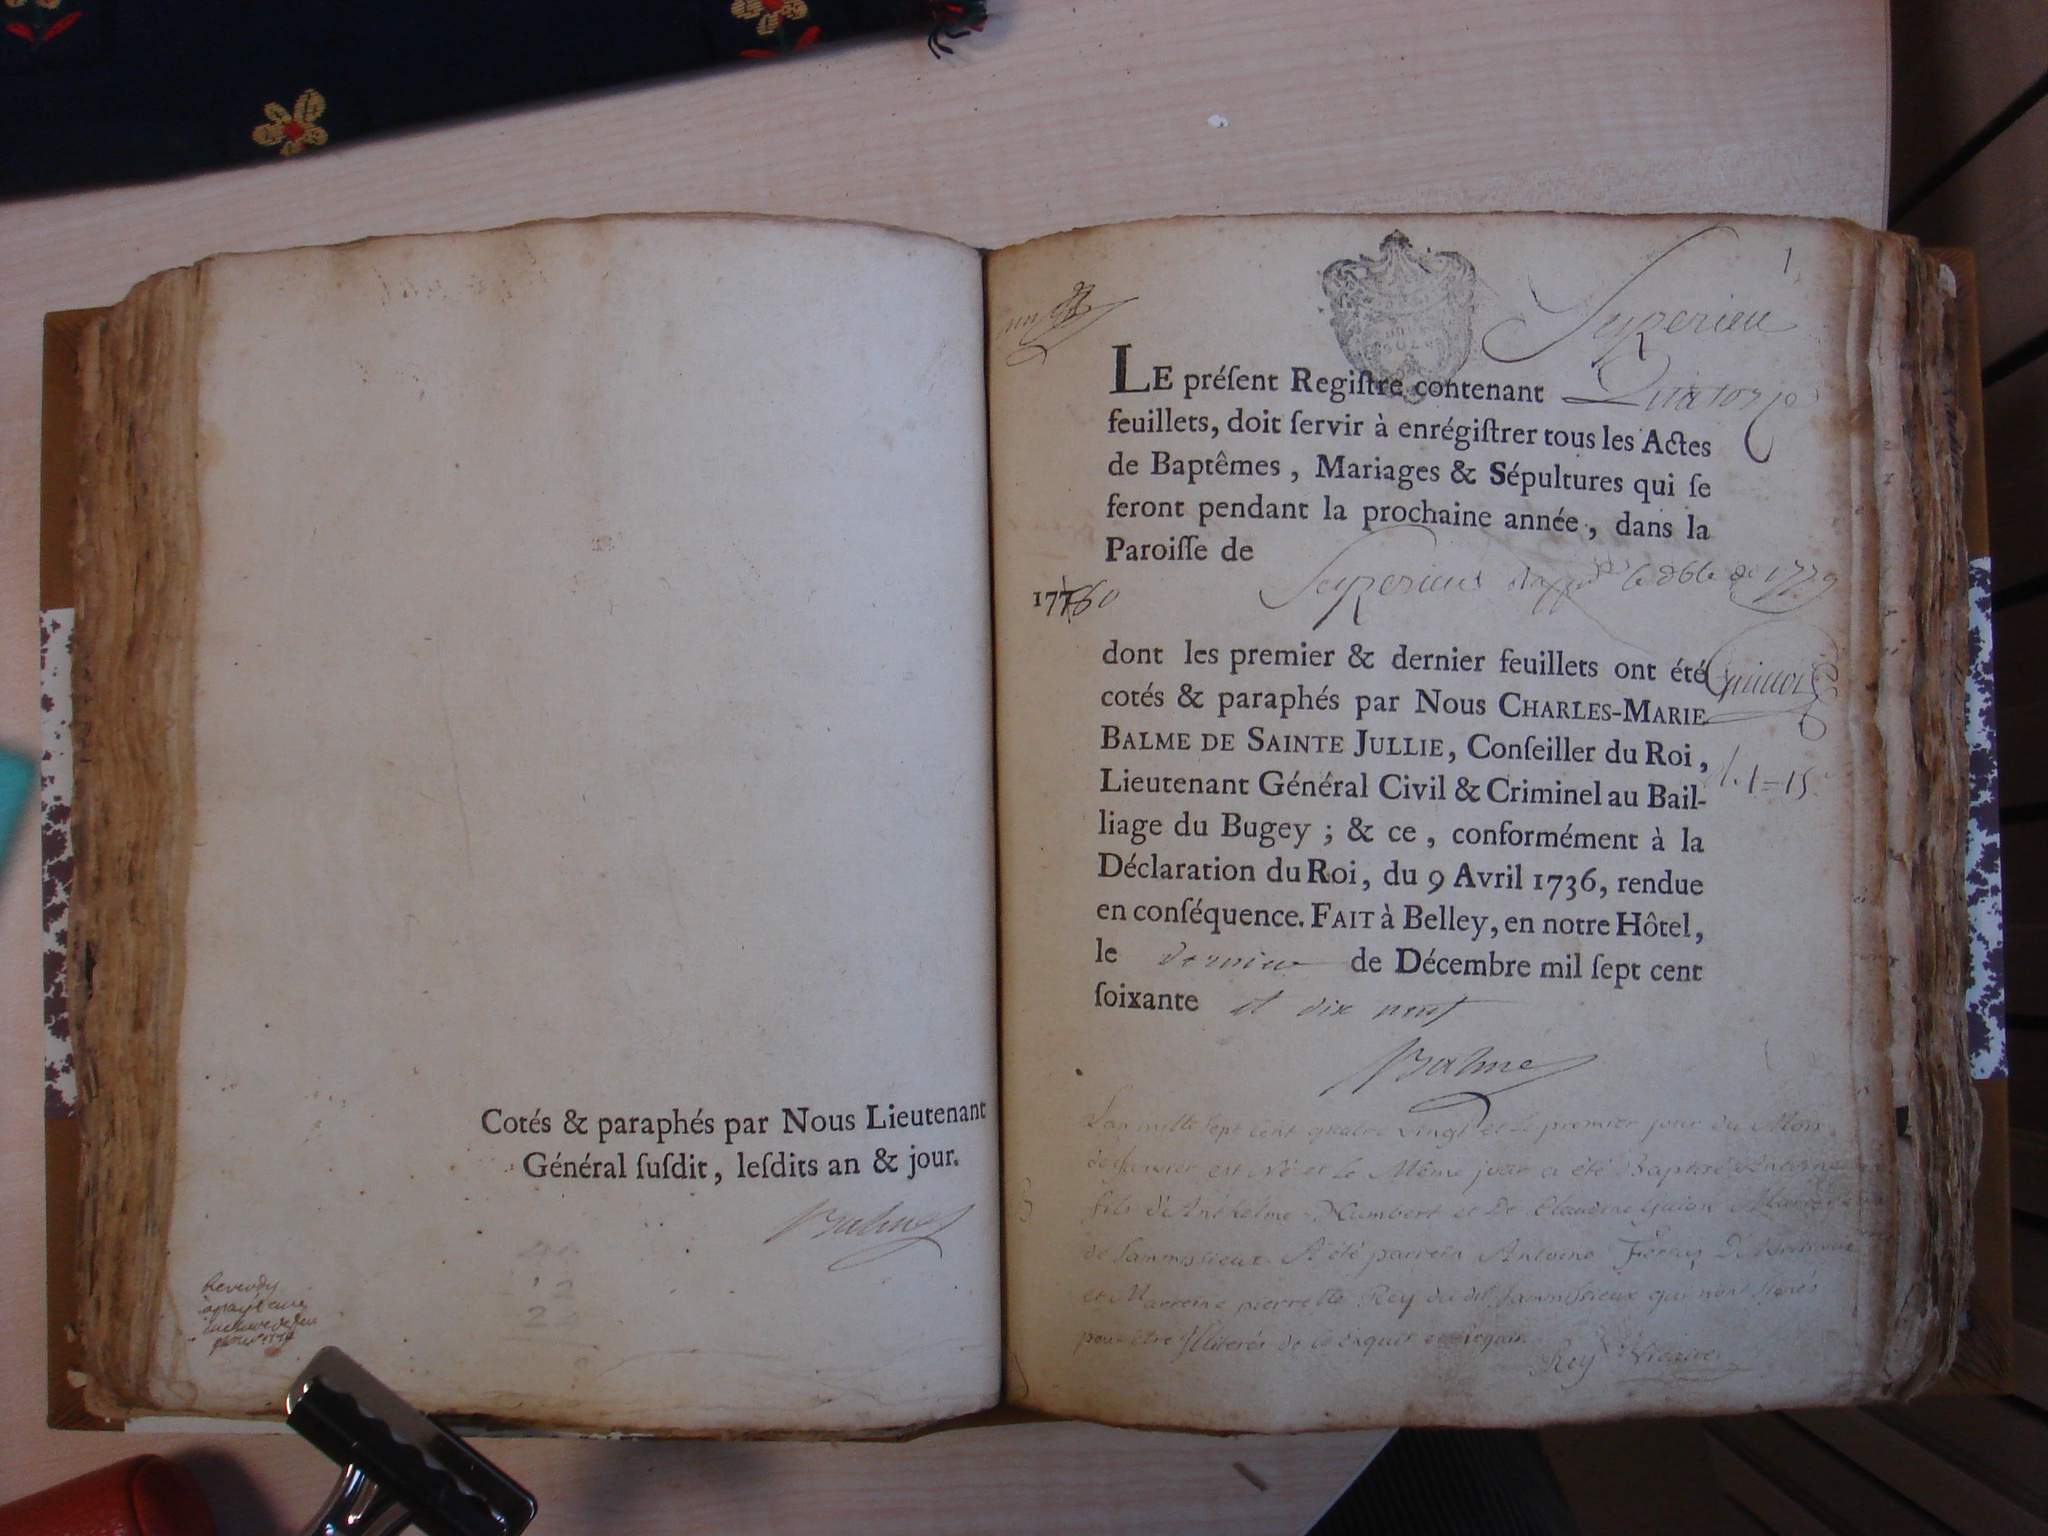 Cotés & paraphés par Nous Lieutenant
Général ſuſdit, leſdits an & jour.
Balme
1
Seyzerieu
LE préſent Regiſtre contenant Quatorze
feuillets, doit ſervir à enrégiſtrer tous les Actes
de Baptêmes, Mariages & Sépultures qui ſe
feront pendant la prochaine année, dans la
Paroiſſe de
Seyzerieu le de 1779
177 80
dont les premier & dernier feuillets ont été
cotés & paraphés par Nous CHARLES-MARIE
BALME DE SAINTE JULLIE, Conſeiller du Roi,
Lieutenant Général Civil & Criminel au Bail-
liage du Bugey ; & ce, conformément à la
Déclaration du Roi, du 9 Avril 1736, rendue
en conſéquence. FAIT à Belley, en notre Hôtel,
le dernier de Décembre mil ſept cent
ſoixante et dix neuf
Balme
L'an mille sept cent quatre vingt et le premier jour du Mois
de Janvier est Né et le Même jour a été Baptisé Antoine
fils d'Anthelme Humbert et De Claudine Guion Mariés
de Lammissieux A été parrein Antoine
et Marreine pierrette Rey du dit Lammissieux qui n'ont signés
pour être Illiterés de ce enquis et requis
Rey Vicaire